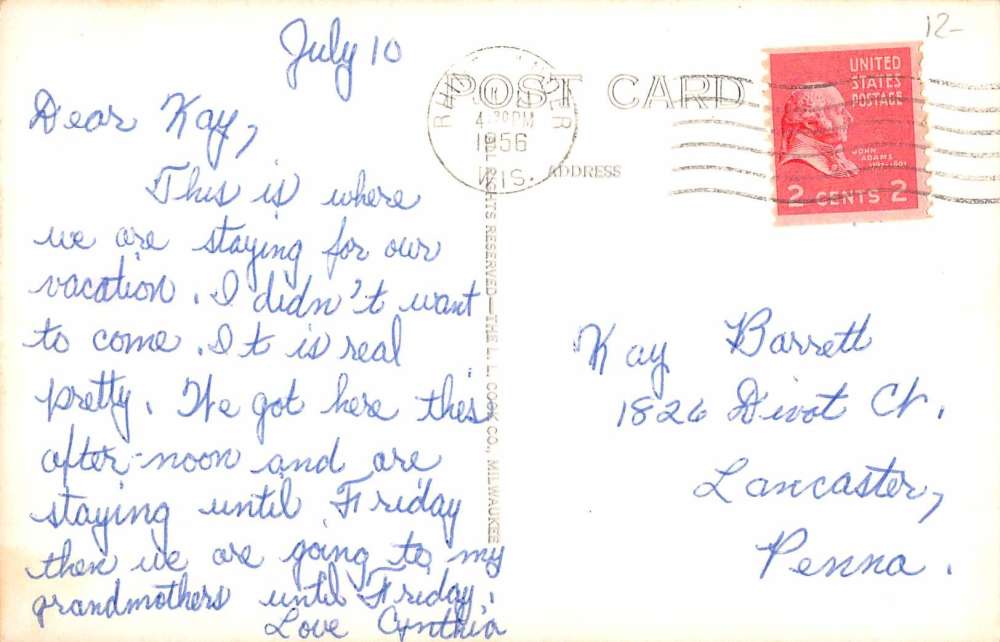 12-
July 10
Dear Kay,
This is where
we are staying for our
vacation. I didn't want
to come. It is real
pretty. We got here this
after-noon and are
staying until Friday
then we are going to my
grandmothers until Friday.
Love Cynthia
POST CARD
ADDRESS
4-30PM
1956
WIS.
UNITED
STATES
POSTAGE
JOHN
ADAMS
1797-1801
2 CENTS 2
ALL RIGHTS RESERVED—THE L. L. COOK CO., MILWAUKEE
Kay Barrett
1826 Divot Ct.
Lancaster,
Penna.